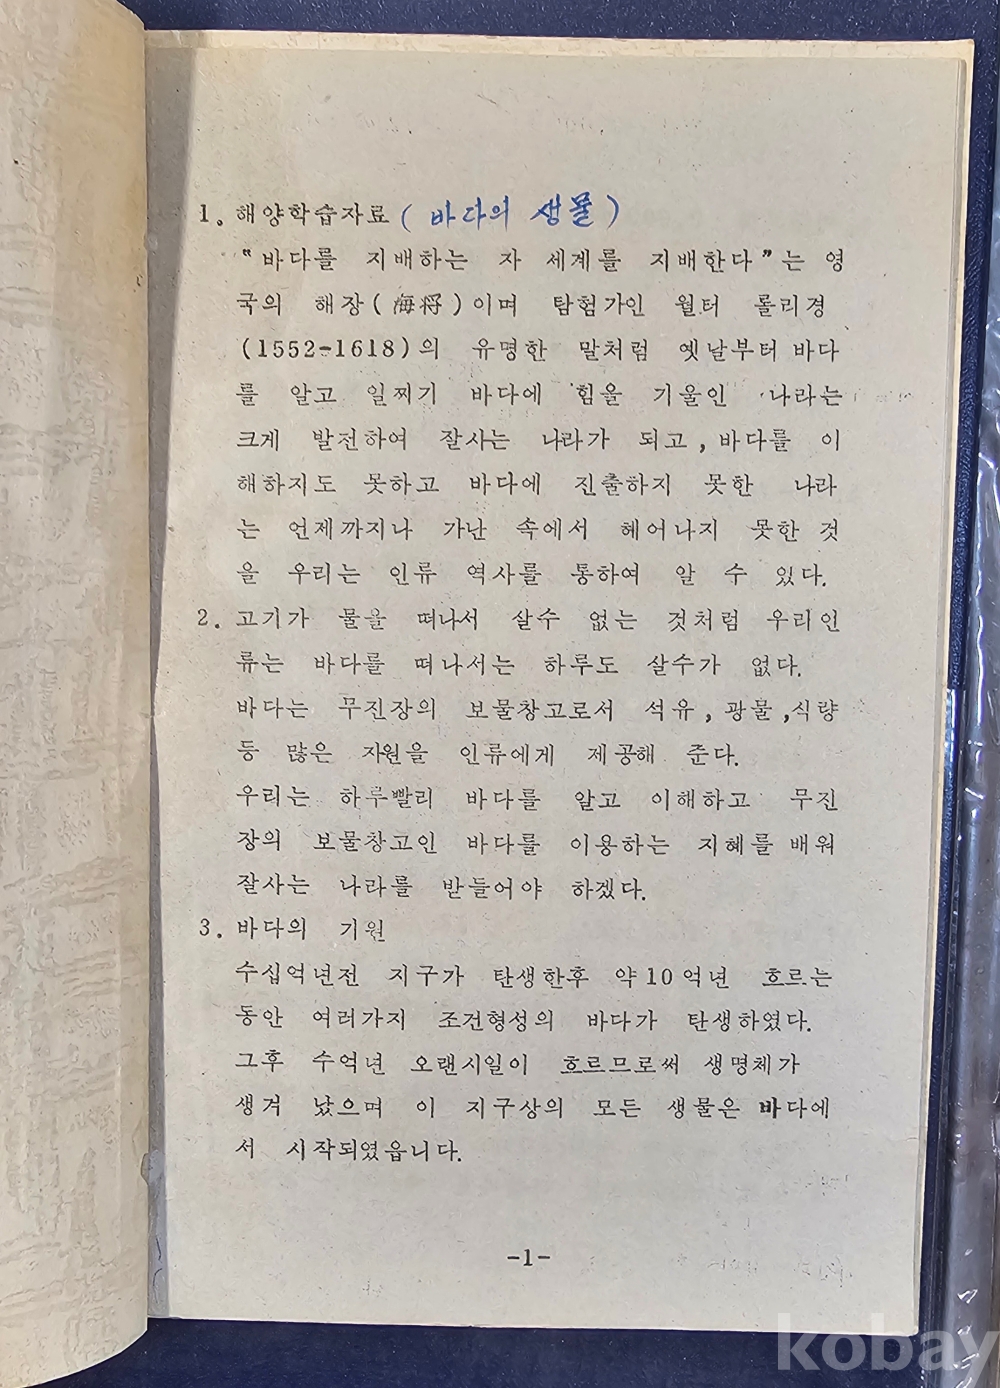 1. 해양학습자료 ( 바다의 생물 )
"바다를 지배하는 자 세계를 지배한다"는 영
국의 해장(海将)이며 탐험가인 월터 롤리경
(1552-1618)의 유명한 말처럼 옛날부터 바다
를 알고 일찌기 바다에 힘을 기울인 나라는
크게 발전하여 잘사는 나라가 되고, 바다를 이
해하지도 못하고 바다에 진출하지 못한 나라
는 언제까지나 가난 속에서 헤어나지 못한 것
을 우리는 인류 역사를 통하여 알 수 있다.
2. 고기가 물을 떠나서 살수 없는 것처럼 우리인
류는 바다를 떠나서는 하루도 살수가 없다.
바다는 무진장의 보물창고로서 석유, 광물, 식량
등 많은 자원을 인류에게 제공해 준다.
우리는 하루빨리 바다를 알고 이해하고 무진
장의 보물창고인 바다를 이용하는 지혜를 배워
잘사는 나라를 받들어야 하겠다.
3. 바다의 기원
수십억년전 지구가 탄생한후 약 10억년 흐르는
동안 여러가지 조건형성의 바다가 탄생하였다.
그후 수억년 오랜시일이 흐르므로써 생명체가
생겨 났으며 이 지구상의 모든 생물은 바다에
서 시작되였읍니다.
-1-
kobay